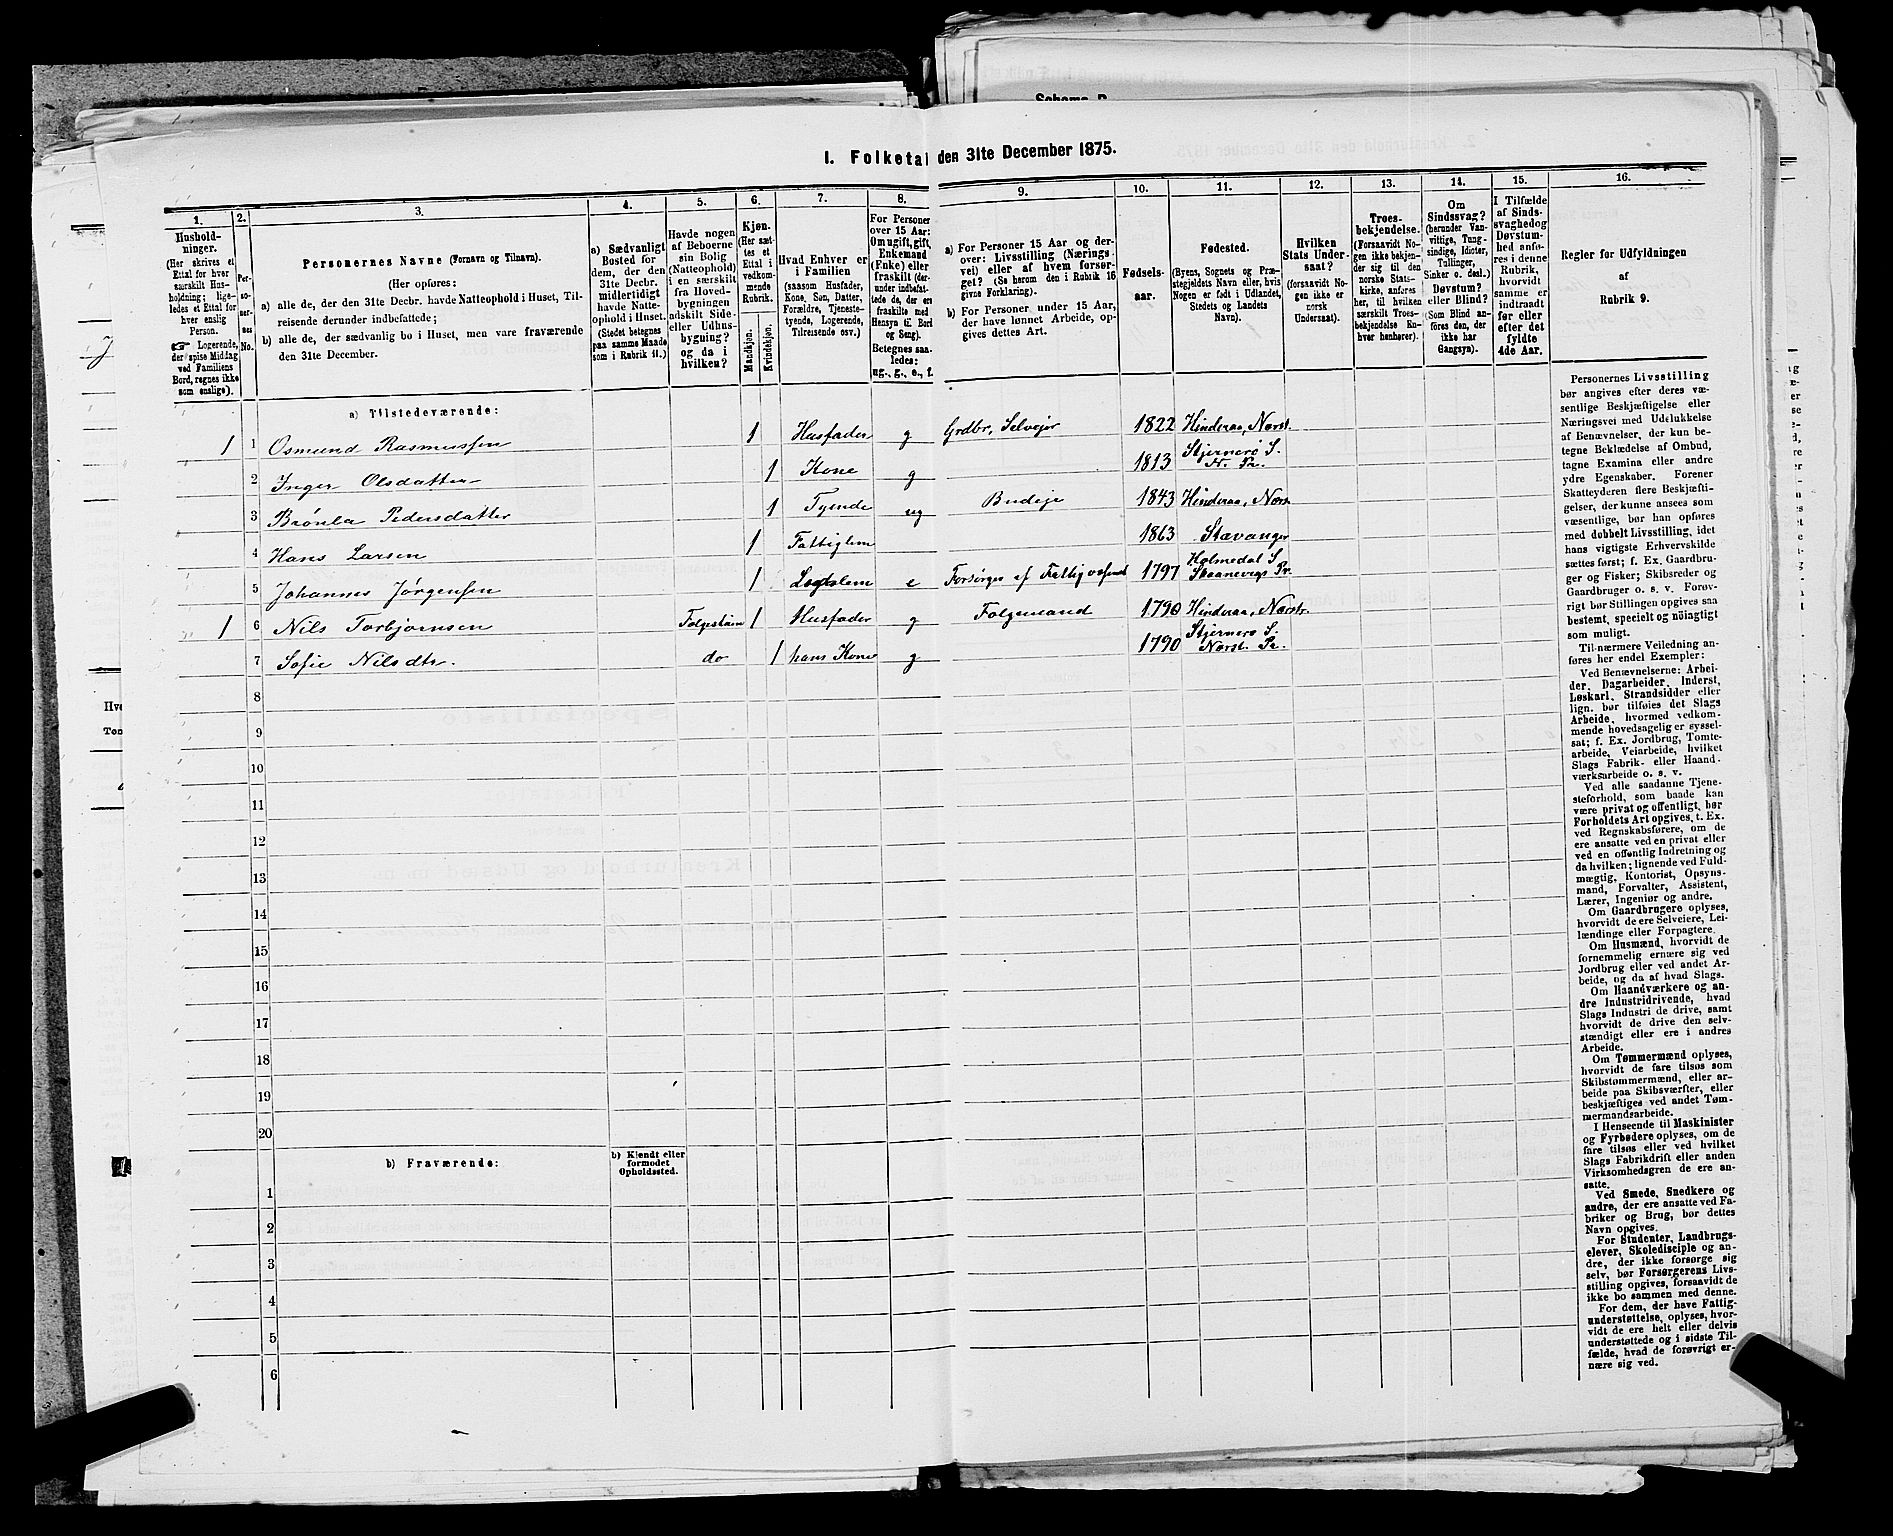 Schema B.
I. Folketal den 31te December 1875.
1.
Hushold-
ninger.
(Her skrives et
Ettal for hver
særskilt Hus-
holdning; lige-
ledes et Ettal for
hver enslig
Person.
☞ Logerende,
der spise Middag
ved Familiens
Bord, regnes ikke
som enslige).
2.
Per-
soner-
nes
No.
3.
Personernes Navne (Fornavn og Tilnavn).
(Her opføres:
a) alle de, der den 31te Decbr. havde Natteophold i Huset, Til-
reisende derunder indbefattede;
b) alle de, der sædvanlig bo i Huset, men vare fraværende
den 31te December.
4.
a) Sædvanligt
Bosted for
dem, der den
31te Decbr.
midlertidigt
havde Natte-
ophold i Huset.
(Stedet betegnes
paa samme Maade
som i Rubrik 11.)
5.
Havde nogen
af Beboerne
sin Bolig
(Natteophold)
i en særskilt
fra Hoved-
bygningen
adskilt Side-
eller Udhus-
bygning?
og da i
hvilken?
6.
Kjøn.
(Her sæt-
tes et
Ettal i
vedkom-
mende
Rubrik.
Mandkjøn.
Kvindekjøn.
7.
Hvad Enhver er
i Familien
(saasom Husfader,
Kone, Søn, Datter,
Forældre, Tjeneste-
tyende, Logerende,
Tilreisende osv.)
8.
For Personer
over 15 Aar:
Om ugift, gift,
Enkemand
(Enke) eller
fraskilt (der-
under indbefat-
tede de, der ere
fraskilte med
Hensyn til Bord
og Seng).
Betegnes saa-
ledes:
ug., g., e., f.
9.
a) For Personer 15 Aar og der-
over: Livsstilling (Nærings-
vei) eller af hvem forsør-
get? (Se herom den i Rubrik 16
givne Forklaring).
b) For Personer under 15 Aar,
der have lønnet Arbeide, op-
gives dettes Art.
10.
Fødsels-
aar.
11.
Fødested.
(Byens, Sognets og Præ-
stegjeldets Navn eller, hvis
Nogen er født i Udlandet,
Stedets og Landets
Navn).
12.
Hvilken
Stats Under-
saat?
(forsaavidt No-
gen ikke er
norsk
Undersaat).
13.
Troes-
bekjendelse.
(Forsaavidt No-
gen ikke bekjen-
der sig til den
norske Stats-
kirke, anføres
her, til hvilken
særskilt Troes-
bekjendelse En-
hver henhører).
14.
Om
Sindssvag?
(herunder Van-
vittige, Tung-
sindige, Idioter,
Tullinger,
Sinker o. desl.)
Døvstum?
eller Blind?
(Som Blind an-
føres den, der
ikke har
Gangsyn).
15.
I Tilfælde
af Sinds-
svaghed og
Døvstum-
hed anfø-
res i denne
Rubrik,
hvorvidt
samme er
indtraadt
før eller
efter det
fyldte
4de Aar.
16.
Regler for Udfyldningen
af
Rubrik 9.
a) Tilstedeværende:
1 1 Osmund Rasmussen 1 Husfader g Grdbr, Selvejer 1822 Hinderaa, Nærst.
2 Inger Olsdatter 1 Kone g 1813 Stjernerø S. N. Pr.
3 Brønla Pedersdatter 1 Tyende ug Budeje 1843 Hinderaa, Nærst
4 Hans Larsen 1 Fattiglem 1863 Stavanger
5 Johannes Jørgensen 1 Lægdslem e Forsørges af Fattigvæsenet 1797 Holmedal S Skaanevigs Pr.
1 6 Nils Torbjørnsen Folgestuen 1 Husfader g Folgemand 1790 Hinderaa, Nærstr
7 Sofie Nilsdtr. do 1 hans Kone g 1790 Stjernerø S. Nærst. Pr.
8
9
10
11
12
13
14
15
16
17
18
19
20
b) Fraværende:
b) Kjendt eller
formodet
Opholdssted.
1
2
3
4
5
6
Personernes Livsstilling
bør angives efter deres væ-
sentlige Beskjæftigelse eller
Næringsvei med Udelukkelse
af Benævnelser, der kun be-
tegne Beklædelse af Ombud,
tagne Examina eller andre
ydre Egenskaber. Forener
Skatteyderen flere Beskjæfti-
gelser, der kunne ansees som
væsentlige, bør han opføres
med dobbelt Livsstilling, idet
hans vigtigste Erhvervskilde
sættes først; f. Ex. Gaardbru-
ger og Fisker; Skibsreder og
Gaardbruger o. s. v. Forøv-
rigt bør Stillingen opgives saa
bestemt, specielt og nøiagtigt
som muligt.
Til nærmere Veiledning an-
føres her endel Exempler:
Ved Benævnelserne: Arbei-
der, Dagarbeider, Inderst,
Løskarl, Strandsidder eller
lign. bør tilføies det Slags
Arbeide, hvormed vedkom-
mende hovedsagelig er syssel-
sat; f. Ex. Jordbrug, Tomte-
arbeide, Veiarbeide, hvilket
Slags Fabrik- eller Haand-
værksarbeide o. s. v.
Ved alle saadanne Tjene-
steforhold, som baade kan
være privat og offentligt, bør
Forholdets Art opgives, t. Ex.
ved Regnskabsførere, om de
ere ansatte ved en privat eller
ved en offentlig Indretning og
da hvilken; lignende ved Fuld-
mægtig, Kontorist, Opsyns-
mand, Forvalter, Assistent,
Lærer, Ingeniør og andre.
Om Gaardbrugere oplyses,
hvorvidt de ere Selveiere, Lei-
lændinge eller Forpagtere.
Om Husmænd, hvorvidt de
fornemmelig ernære sig ved
Jordbrug eller ved andet Ar-
beide, og da af hvad Slags.
Om Haandværkere og an-
dre Industridrivende, hvad
Slags Industri de drive, samt
hvorvidt de drive den selv-
stændigt eller ere i andres
Arbeide.
Om Tømmermænd oplyses,
hvorvidt de fare tilsøs som
Skibstømmermænd, eller ar-
beide paa Skibsværfter, eller
beskjæftiges ved andet Tøm-
mermandsarbeide.
I Henseende til Maskinister
og Fyrbødere oplyses, om de
fare tilsøs eller ved hvilket
Slags Fabrikdrift eller anden
Virksomhedsgren de ere an-
satte.
Ved Smede, Snedkere og
andre, der ere ansatte ved Fa-
briker og Brug, bør dettes
Navn opgives.
For Studenter, Landbrugs-
elever, Skoledisciple og an-
dre, der ikke forsørge sig
selv, bør Forsørgerens Livs-
stilling opgives, forsaavidt de
ikke bo sammen med denne.
For dem, der have Fattig-
understøttelse, oplyses, hvor-
vidt de ere helt eller delvis
understøttede og i sidste Til-
fælde, hvad de forøvrigt er-
nære sig ved.